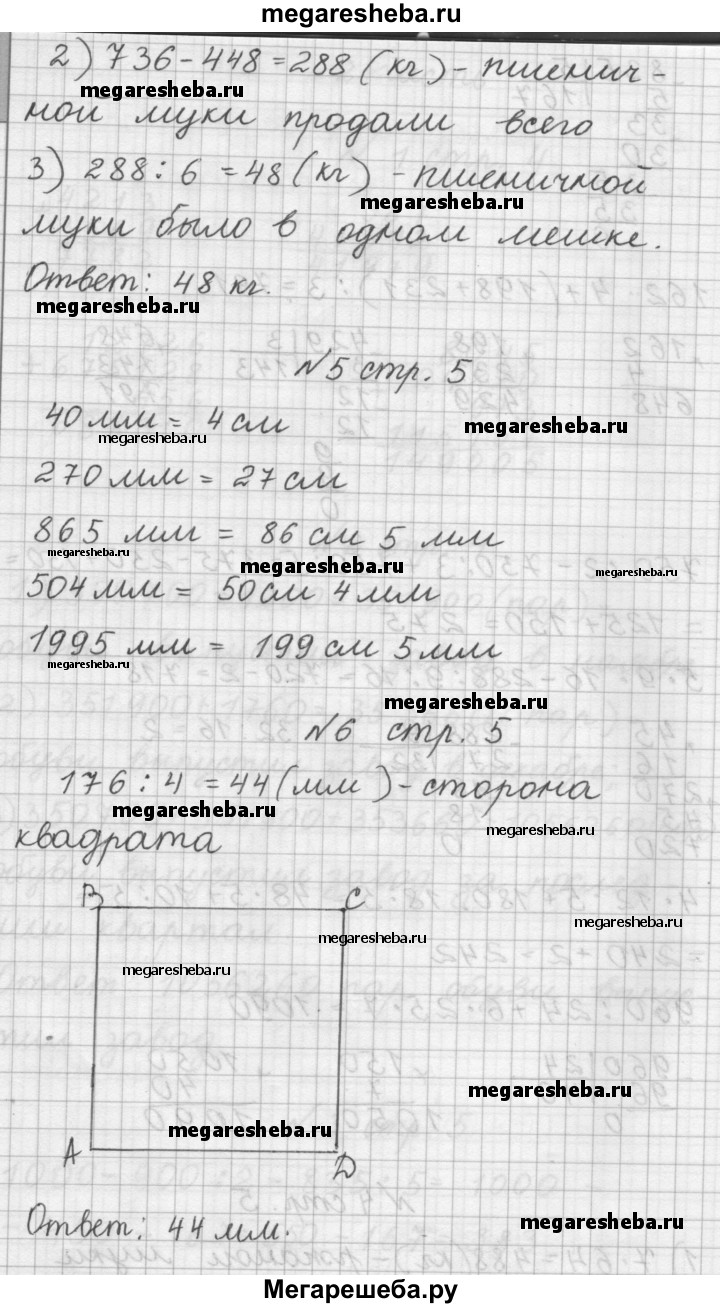 megaresheba.ru
2) 736 - 448 = 288 (кг) - пшенич-
megaresheba.ru
ной муки продали всего
3) 288 : 6 = 48 (кг) - пшеничной
megaresheba.ru
муки было в одном мешке.
Ответ: 48 кг.
megaresheba.ru
№5 стр. 5
40 мм = 4 см
megaresheba.ru
megaresheba.ru
270 мм = 27 см
865 мм = 86 см 5 мм
megaresheba.ru
megaresheba.ru
megaresheba.ru
504 мм = 50 см 4 мм
1995 мм = 199 см 5 мм
megaresheba.ru
megaresheba.ru
№6 стр. 5
176 : 4 = 44 (мм) - сторона
megaresheba.ru
megaresheba.ru
квадрата
B C
megaresheba.ru
megaresheba.ru
megaresheba.ru
megaresheba.ru
megaresheba.ru
A D
Ответ: 44 мм.
megaresheba.ru
Мегарешеба.ру